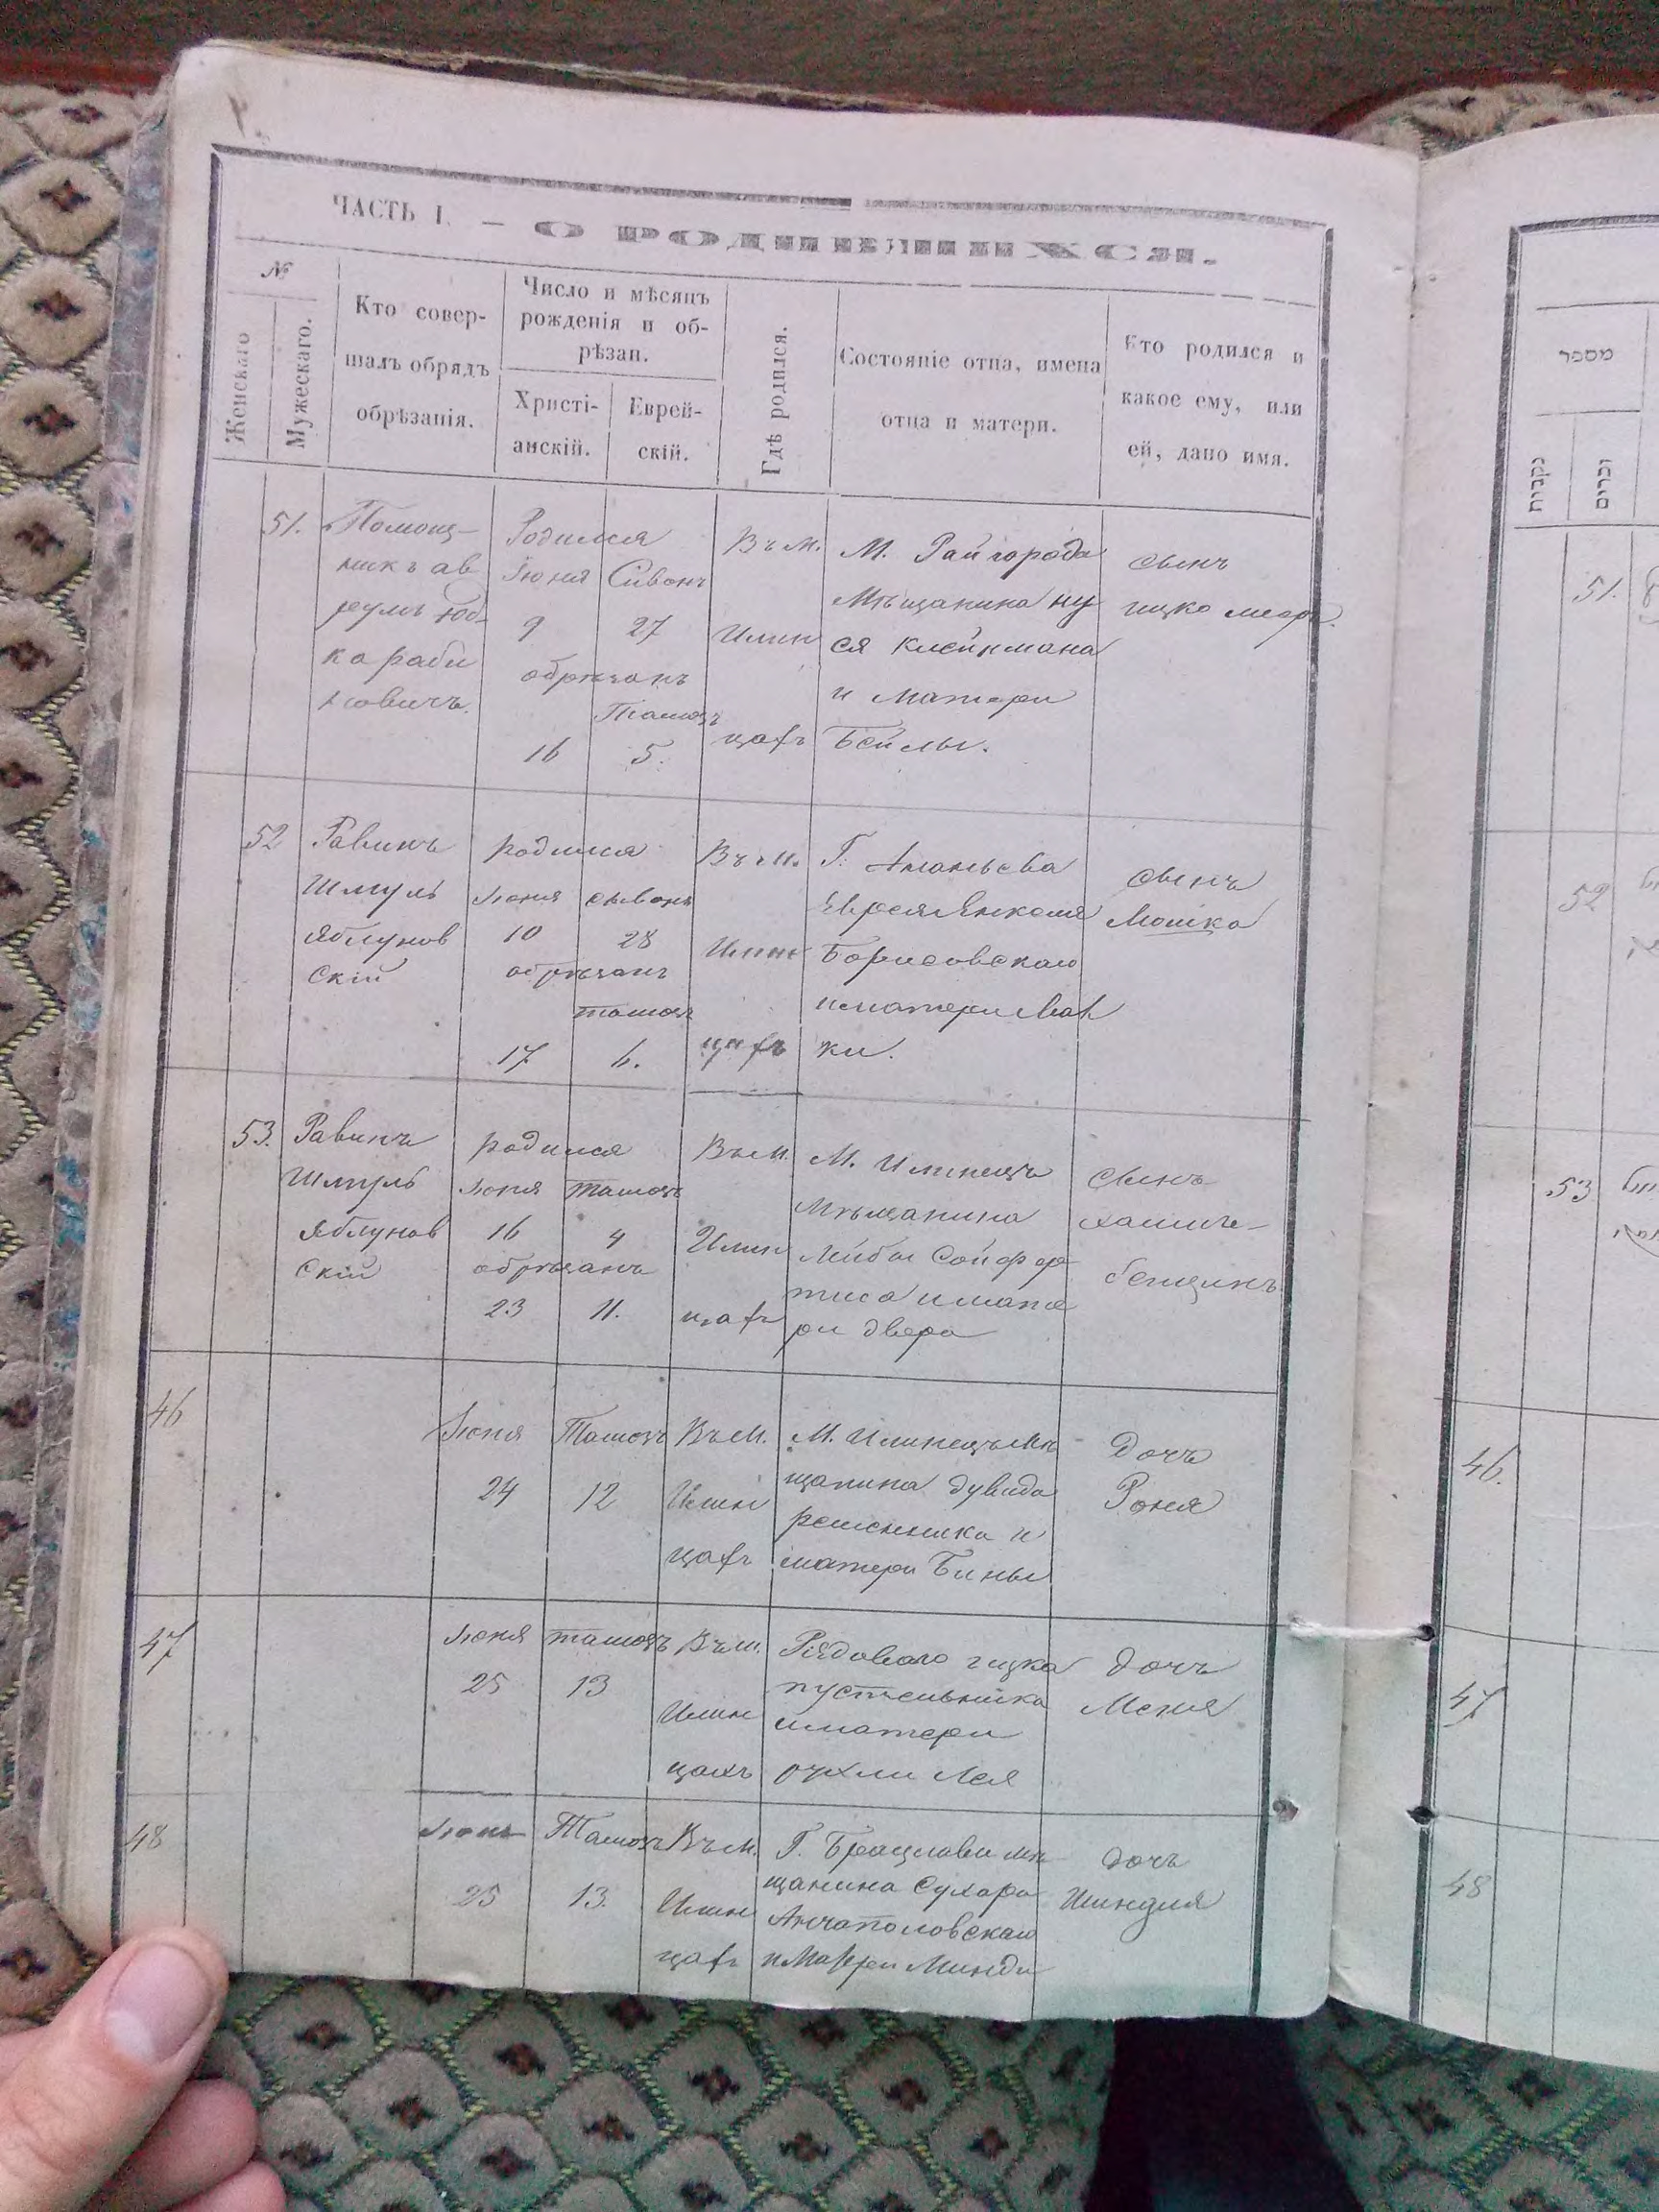 ЧАСТЬ I. — О РОДИВШИХСЯ.
№
Женскаго
Мужескаго.
Кто совер-
шалъ обрядъ
обрѣзанія.
Число и мѣсяцъ
рожденія и об-
рѣзан.
Христі-
анскій.
Еврей-
скій.
Гдѣ родился.
Состояніе отца, имена
отца и матери.
Кто родился и
какое ему, или
ей, дано имя.
51.
Помощ-
никъ ав
румъ
караби
новичъ.
Родился
Іюня Сивонъ
9 27
обрѣзанъ
Тамозъ
16 5.
Въ м.
Илин
цахъ
М. Райгорода
Мѣщанина Ну
ся Клейнмана
и матери
Бейлы.
сынъ
ицко
52
Равинъ
Шмуль
Яблунов
скій
родился
Іюня сивонъ
10 28
обрѣзанъ
тамозъ
17 6.
Въ м.
Илин
цахъ
Г. Ананьева
Еврея Янкеля
Борисовскаго
и матери
ки.
сынъ
Мошко
53.
Равинъ
Шмуль
Яблунов
скій
родился
Іюня тамозъ
16 4
обрѣзанъ
23 11.
Въ м.
Илин
цахъ
М. Илинецъ
Мѣщанина
Лейбы
и мате
ри двера
сынъ
46
Іюня Тамозъ
24 12
Въ м.
Илин
цахъ
М. Илинецъ мѣ
щанина дувида
решетника и
матери Бины
Дочь
Роня
47
Іюня тамозъ
25 13
Въ м.
Илин
цахъ
Рядоваго ицка
пустельника
и матери
рухли Лея
дочь
Меня
48
Іюня Тамозъ
25 13.
Въ м.
Илин
цахъ
Г. Брацлава мѣ
щанина Сухара
Анчаполовскаго
и матери Минди
дочь
Шиндля
מספר
נקבות
זכרים
51.
52
53
46.
47
48